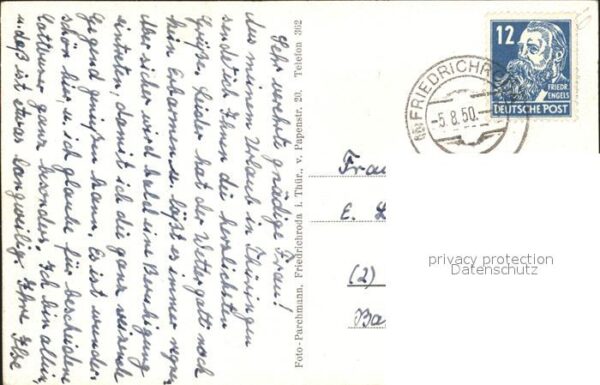 Sehr verehrte gnädige Frau!
Aus meinem Urlaub in Thüringen
sende ich Ihnen die herzlichsten
Grüße. Leider hat der Wettergott noch
kein Erbarmen u. läßt es immer regnen.
Aber sicher wird bald eine Beruhigung
eintreten, damit ich die ganz reizende
Gegend genießen kann. Es ist wunder-
schön hier, u. ich glaube für bescheidene
ganz besonders. Ich bin allein,
u. daß ist etwas langweilig. Ihre Ilse
Foto-Parchmann, Friedrichroda i. Thür., v. Papenstr. 20. Telefon 362
12
FRIEDR.
ENGELS
DEUTSCHE POST
FRIEDRICHRO
-5.8.50.-
Frau
E.
(2)
Ba
privacy protection
Datenschutz